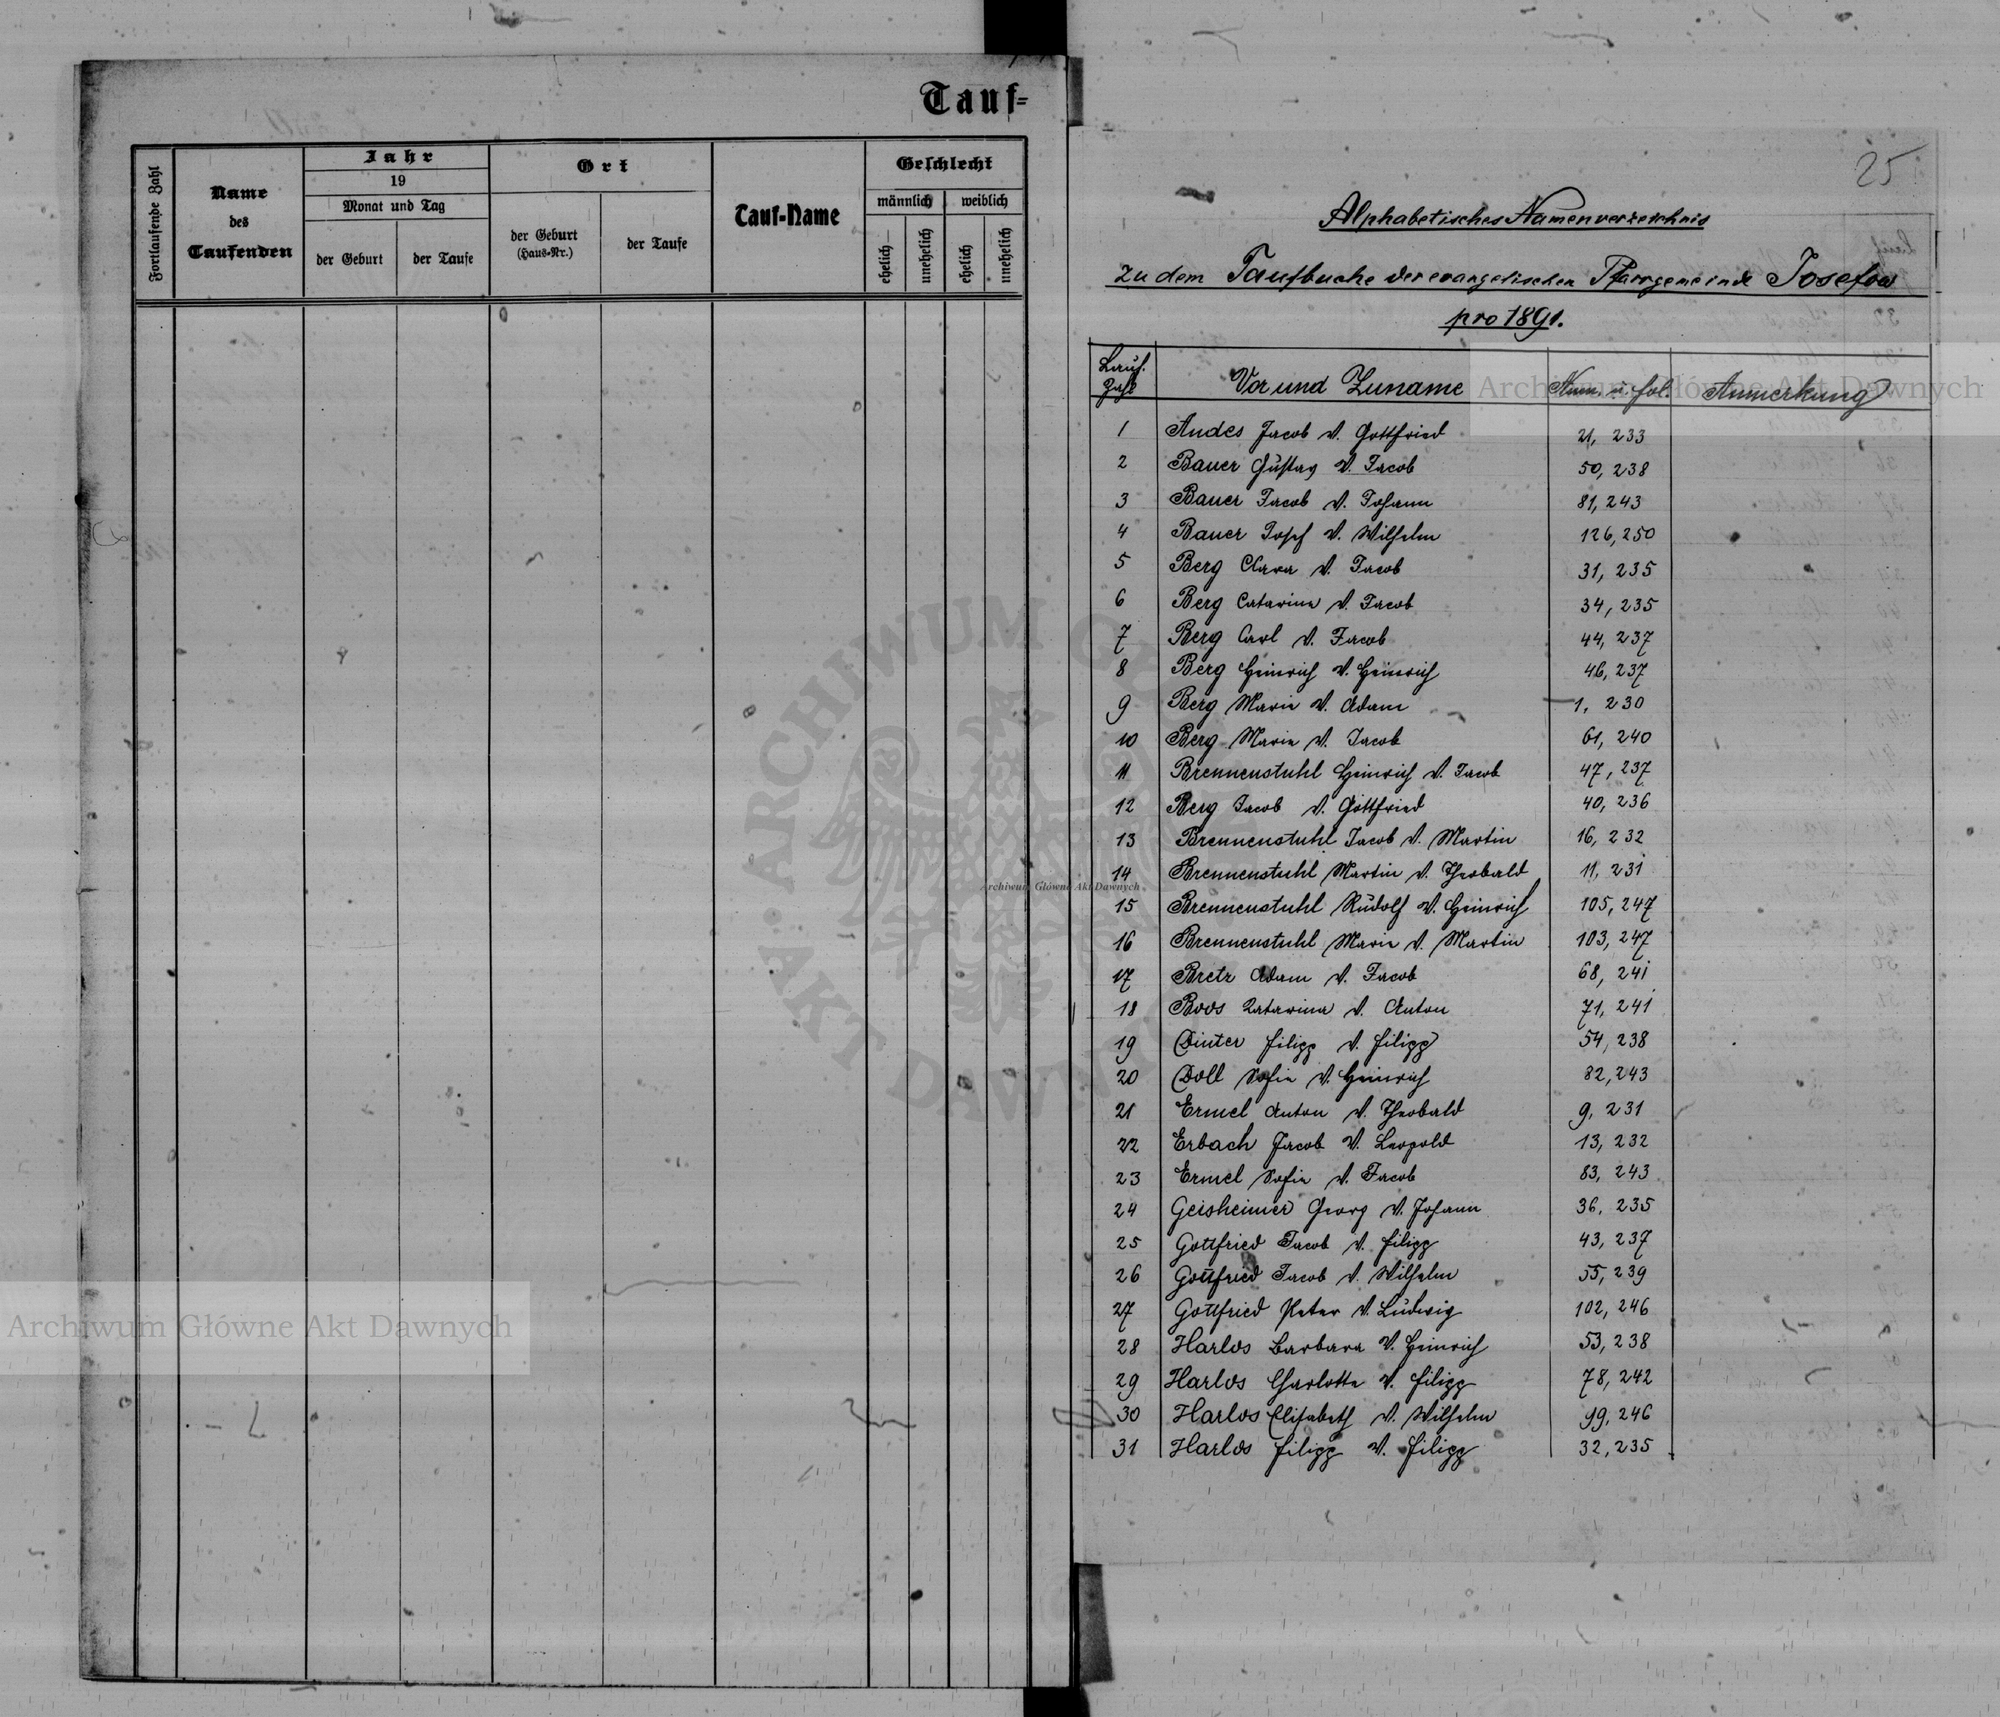 Tauf-
Fortlaufende Zahl
Name
des
Taufenden
Jahr
19
Monat und Tag
der Geburt
der Taufe
Ort
der Geburt
(Haus-Nr.)
der Taufe
Tauf-Name
Geschlecht
männlich
weiblich
ehelich
unehelich
ehelich
unehelich
25
Alphabetisches Namenverzeichnis
zu dem Taufbuche der evangelischen Pfarrgemeinde Josefow
pro 1891.
Lauf. Zahl Vor und Zuname Num. u. fol. Anmerkung
1 Andes Jacob v. Gottfried 21, 233
2 Bauer Gustav v. Jacob 50, 238
3 Bauer Jacob v. Johann 81, 243
4 Bauer Josef v. Wilhelm 126, 250
5 Berg Clara v. Jacob 31, 235
6 Berg Catarina v. Jacob 34, 235
7 Berg Carl v. Jacob 44, 237
8 Berg Heinrich v. Heinrich 46, 237
9 Berg Marie v. Adam 1, 230
10 Berg Marie v. Jacob 61, 240
11 Brennenstuhl Heinrich v. Jacob 47, 237
12 Berg Jacob v. Gottfried 40, 236
13 Brennenstuhl Jacob v. Martin 16, 232
14 Brennenstuhl Martin v. Theobald 11, 231
15 Brennenstuhl Rudolf v. Heinrich 105, 247
16 Brennenstuhl Marie v. Martin 103, 247
17 Bretz Adam v. Jacob 68, 241
18 Boos Katarina v. Anton 71, 241
19 Dinter Filipp v. Filipp 54, 238
20 Doll Sofie v. Heinrich 82, 243
21 Ermel Anton v. Theobald 9, 231
22 Erbach Jacob v. Leopold 13, 232
23 Ermel Sofie v. Jacob 83, 243
24 Geisheimer Georg v. Johann 36, 235
25 Gottfried Jacob v. Filipp 43, 237
26 Gottfried Jacob v. Wilhelm 55, 239
27 Gottfried Peter v. Ludwig 102, 246
28 Harlos Barbara v. Heinrich 53, 238
29 Harlos Charlotte v. Filipp 78, 242
30 Harlos Elisabeth v. Wilhelm 99, 246
31 Harlos Filipp v. Filipp 32, 235
Archiwum Główne Akt Dawnych
Archiwum Główne Akt Dawnych
Archiwum Główne Akt Dawnych